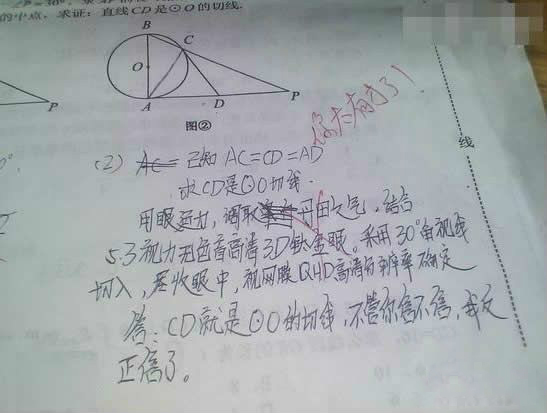 P=30°，求AP的长
的中点，求证：直线CD是⊙O的切线.
B
C
O
A
D
P
P
图②
你太有才了！
(2) AC= 已知 AC=CD=AD
求CD是⊙O切线.
用眼运力，调取丹田之气，结合
5.3视力无色盲高清3D钛金眼。采用30°角视线
切入，尽收眼中，视网膜QHD高清分辨率确定
答：CD就是⊙O的切线，不管你信不信，我反
正信了。
线